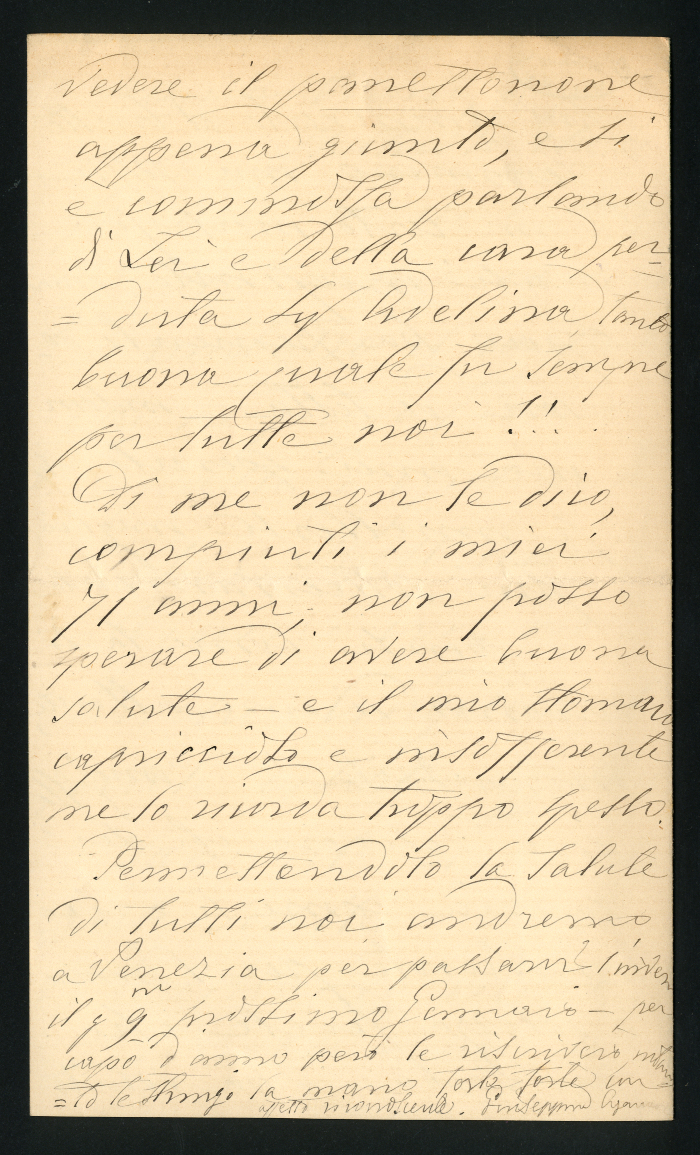 vedere il panettonone
appena giunto, e si
è commossa parlando
di Lei e della cara per=
=duta Adelina, tanto
buona quale fu sempre
per tutte noi!!!
Di me non le dico,
compiuti i miei
71 anni, non posso
sperare di avere buona
salute – e il mio stomaco
capriccioso e insofferente
me lo ricorda troppo spesso.
Permettendolo la salute
di tutti noi andremo
a Venezia per passarvi l'inver
il g 9 prossimo Gennaio – per
capo d'anno però le riscriverò
le stringo la mano forte forte con
affetto riconoscente. Giuseppina